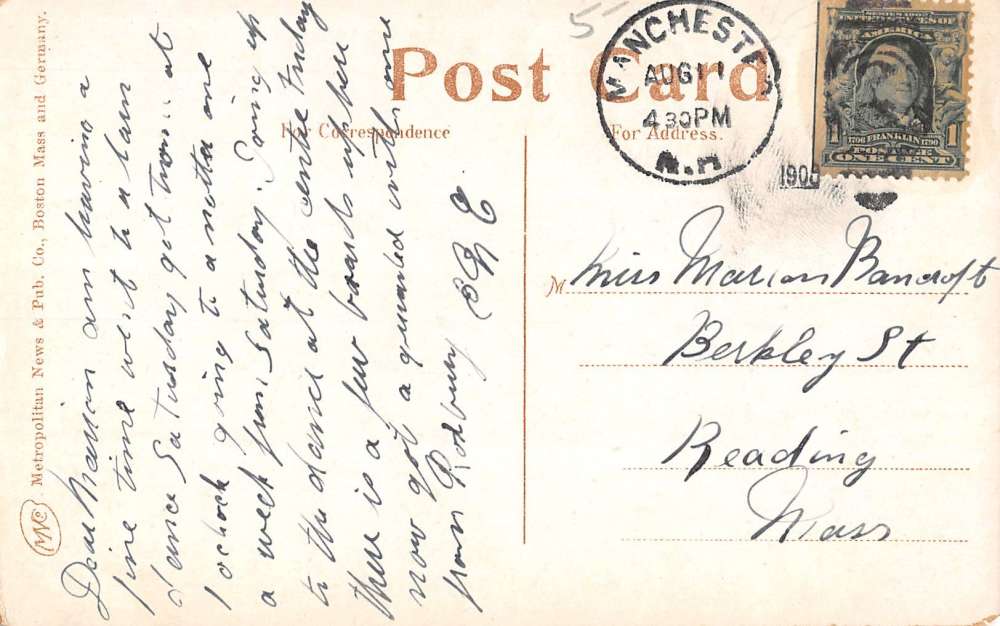 Post Card
For Correspondence
For Address.
MANCHESTER
AUG 11
4 30 PM
N.H.
190
SERIES 1902
UNITED STATES OF
AMERICA
1 1
1706 FRANKLIN 1790
POSTAGE
ONE CENT
5-
Metropolitan News & Pub. Co., Boston Mass and Germany.
Dear Marion am having a
fine time went to a barn
dance Saturday got home at
1 oclock going to a nother one
a week from Saturday. Going up
to the dance at the centre Friday
there is a few boards up here
now got a qumded with one
from Roxbury
M
Miss Marion Bancroft
Berkley St
Reading
Mass